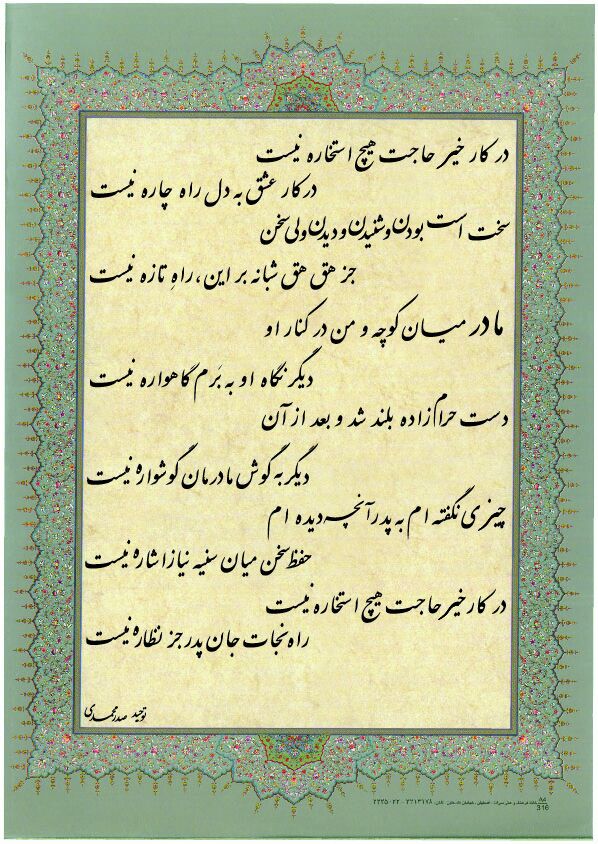 در کار خیر حاجت هیچ استخاره نیست
در کار عشق به دل راه چاره نیست
سخت است بودن و شنیدن و دیدن ولی سخن
جز هق هق شبانه بر این، راهِ تازه نیست
مادر میان کوچه و من در کنار او
دیگر نگاه او به بَرم گاهواره نیست
دست حرام‌زاده بلند شد و بعد از آن
دیگر به گوش مادرمان گوشواره نیست
چیزی نگفته ام به پدر آنچه دیده ام
حفظ سخن میان سینه نیاز اشاره نیست
در کار خیر حاجت هیچ استخاره نیست
راه نجات جان پدر جز نظاره نیست
توحید صدرمحمدی
A4
316